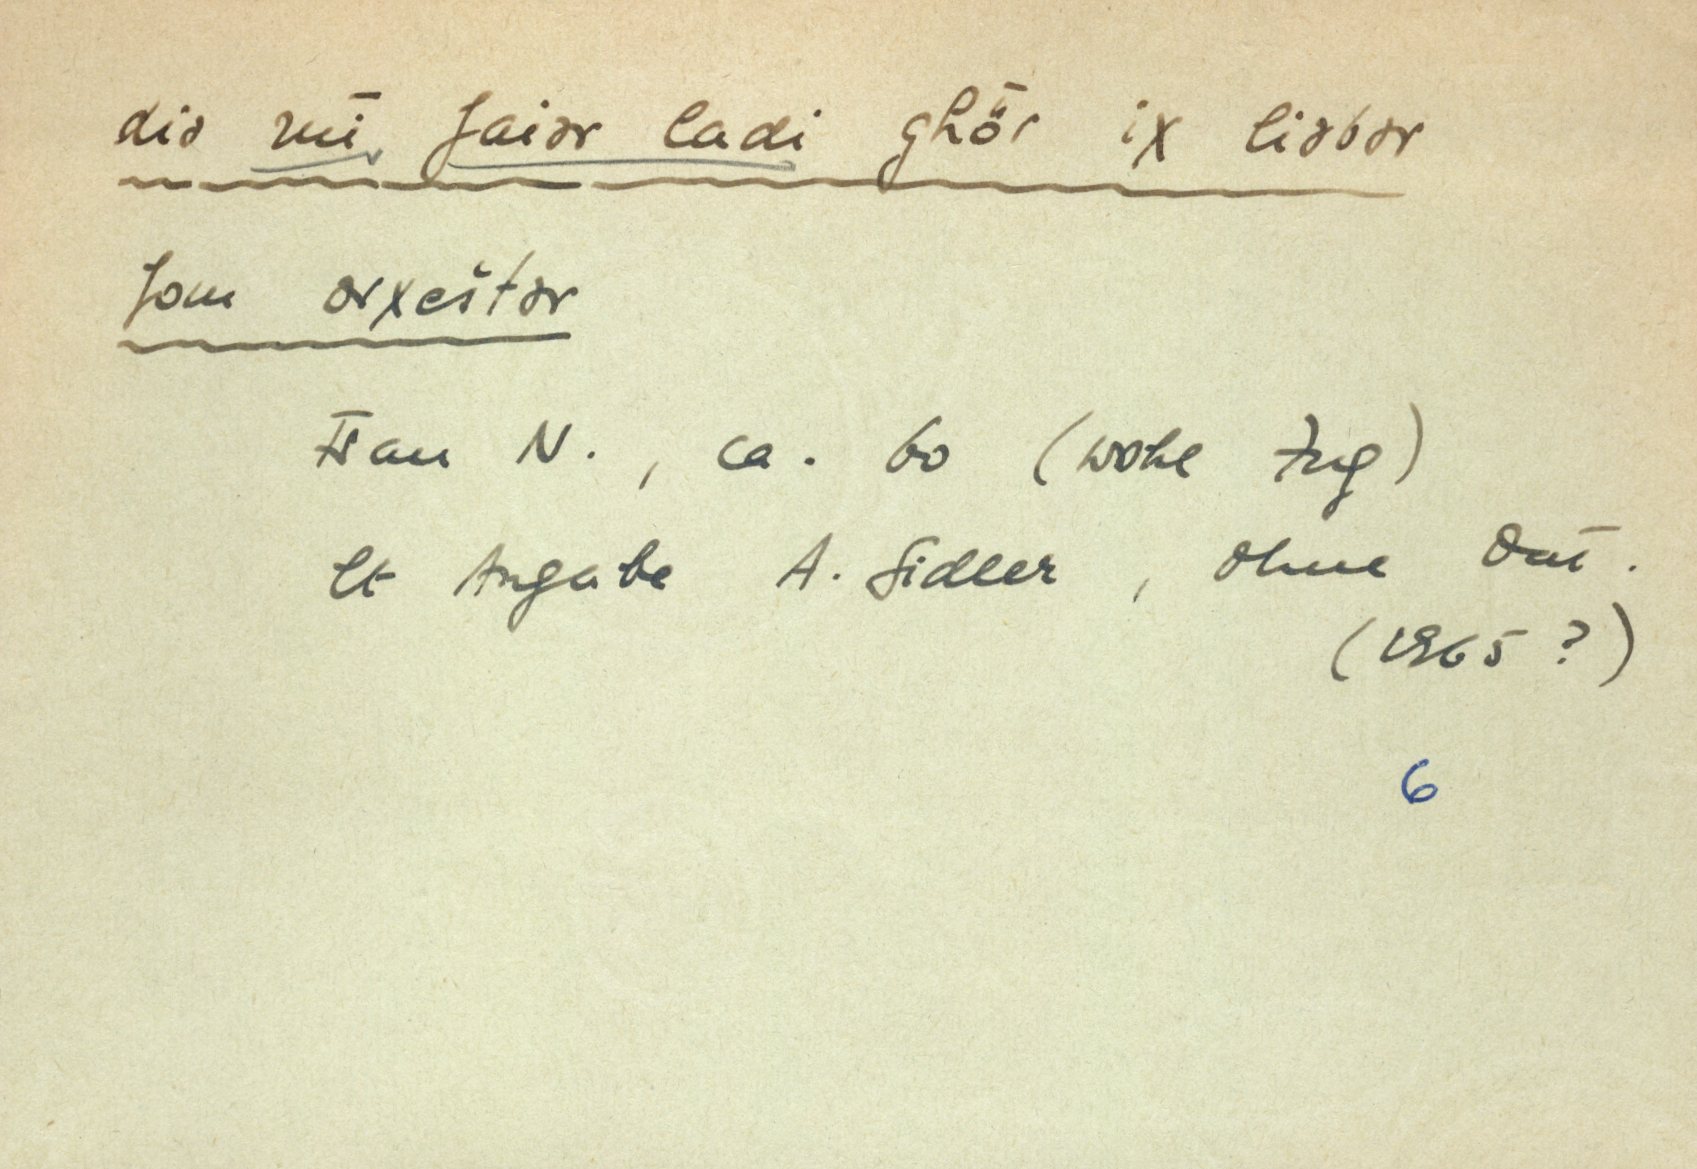 diə mī faiər ladi ghȫr ix liəbər
fom orxeštər
Frau N., ca. 60 (wohl Zug)
lt Angabe A. Sidler, ohne Dat.
(1965?)
6